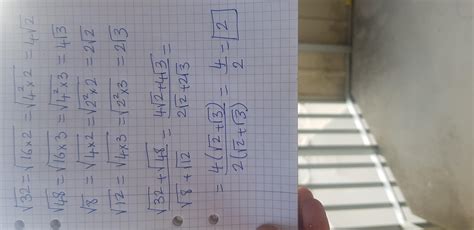 √32 = √16×2 = √4²×2 = 4√2
√48 = √16×3 = √4²×3 = 4√3
√8 = √4×2 = √2²×2 = 2√2
√12 = √4×3 = √2²×3 = 2√3
(√32 + √48)/(√8 + √12) = (4√2+4√3)/(2√2+2√3) =
= 4(√2+√3)/2(√2+√3) = 4/2 = 2